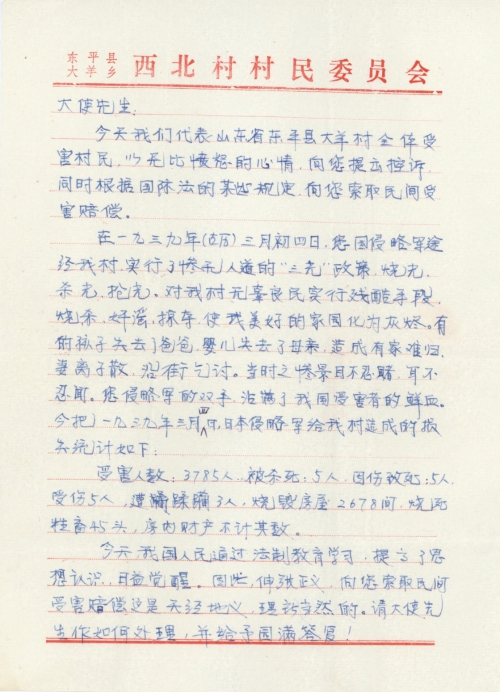 东平县
大羊乡
西北村村民委员会
大使先生:
今天我们代表山东省东平县大羊村全体受
害村民,以无比愤怒的心情,向您提出控诉,
同时根据国际法的某些规定,向您索取民间受
害赔偿。
在一九三九年(古历)三月初四日,您国侵略军途
经我村,实行了惨无人道的“三光”政策,烧光,
杀光,抢光。对我村无辜良民实行残酷手段,
烧杀,奸淫,掠夺,使我美好的家园化为灰烬。有
的孩子失去了爸爸,婴儿失去了母亲,造成有家难归,
妻离子散,沿街乞讨。当时之惨景目不忍睹,耳不
忍闻。您侵略军的双手,沾满了我国受害者的鲜血。
今把一九三九年三月四日,日本侵略军给我村造成的损
失统计如下:
受害人数:3785人,被杀死:5人,因伤致死:5人,
受伤5人,遭蹂躏3人,烧毁房屋2678间,烧死
牲畜45头,房内财产不计其数。
今天,我国人民通过法制教育学习,提高了思
想认识,日益觉醒。因此,伸张正义,向您索取民间
受害赔偿这是天经地义,理所当然的。请大使先
生作如何处理,并给予圆满答复!